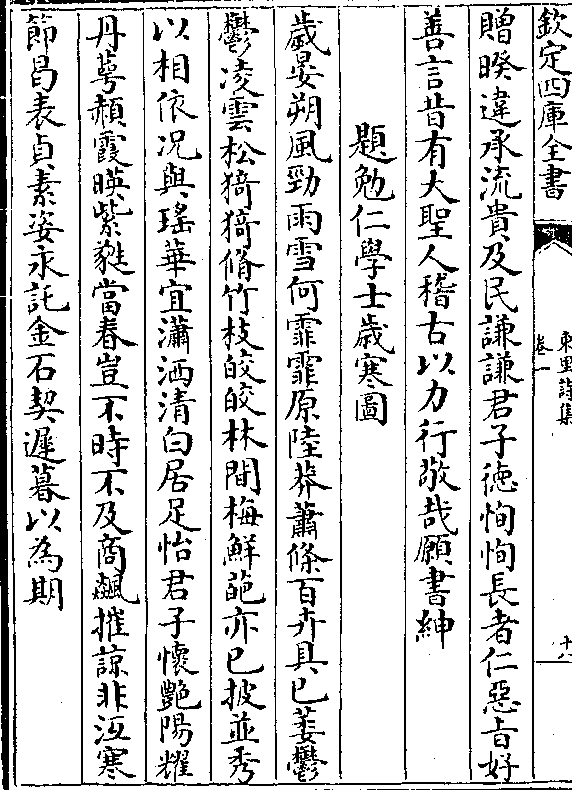 欽定四庫全書
東里詩集
卷一
十八
贈暌違承流貴及民謙謙君子徳恂恂長者仁惡旨好
善言昔有大聖人稽古以力行敬哉願書紳
題勉仁學士歲寒圖
歲晏朔風勁雨雪何霏霏原陸莽蕭條百卉具已萎鬱
鬱凌雲松猗猗脩竹枝皎皎林間梅鮮葩亦已披並秀
以相依况與瑤華宜瀟洒清白居足怡君子懷艷陽耀
丹萼赬霞暎紫蕤當春豈不時不及商飈摧諒非沍寒
節曷表貞素姿永託金石契遲暮以為期